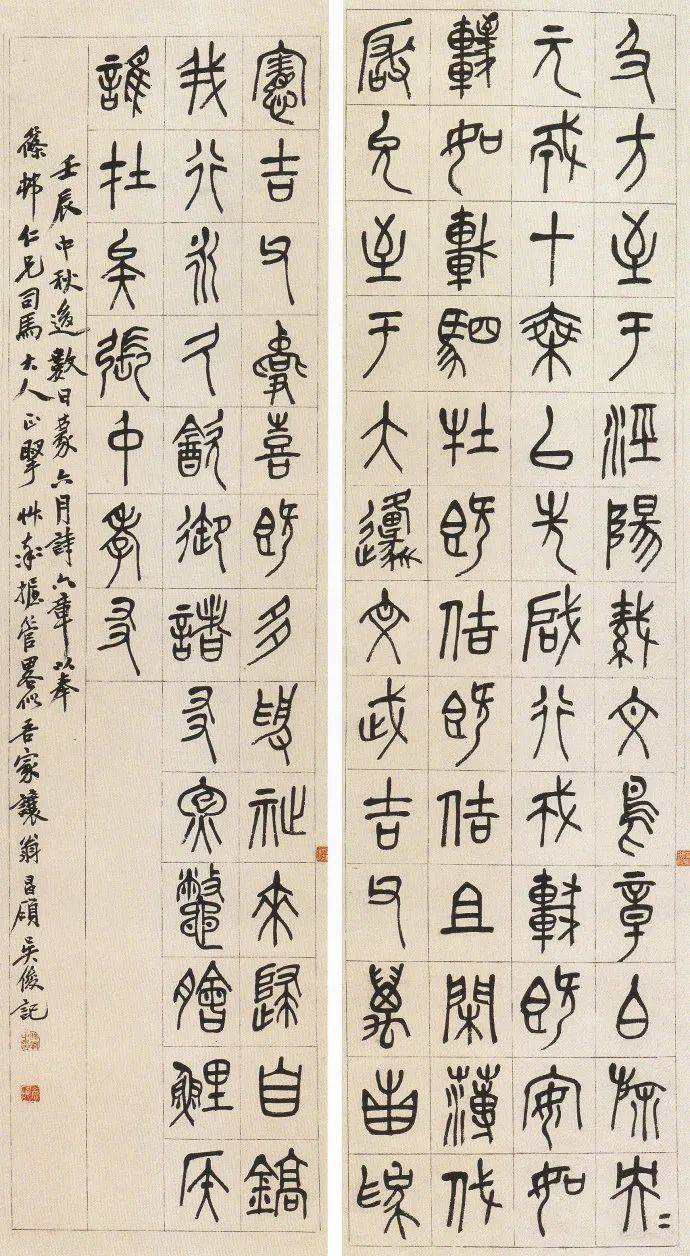 及方至于涇陽織文鳥章白旆央=
元戎十乘以先啟行戎車既安如
輊如軒駟牡既佶既佶且閑薄伐
厰允至于大邍文武吉甫萬邦為
憲吉甫燕喜既多受祉來歸自鎬
我行永久飲御諸友炰鱉膾鯉侯
誰在矣張中孝友
壬辰中秋後數日篆六月詩六章以奉
篠邨仁兄司馬大人正擘艸率摳管畧似吾家讓翁昌碩吳俊記